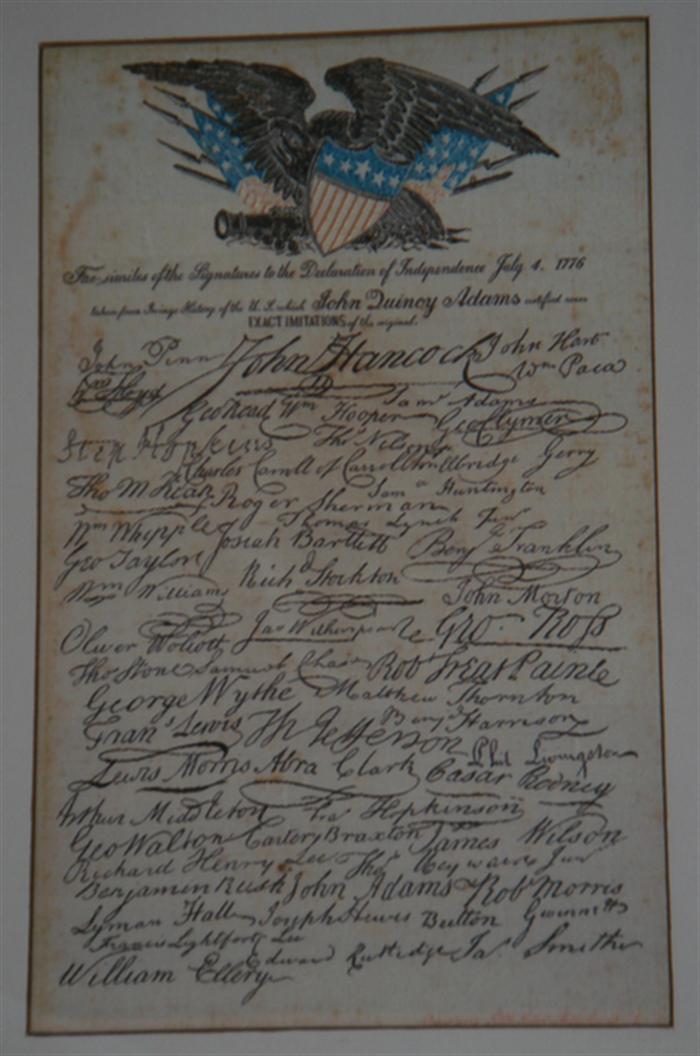 Fac-similes of the Signatures to the Declaration of Independence July 4. 1776
taken from History of the U.S. which John Quincy Adams certified were
EXACT IMITATIONS of the original.
John Penn John Hancock John Hart
Wm Floyd Wm Paca
Saml Adams
Geo Read Wm Hooper Geo Clymer
Step Hopkins Thos Nelson jr
Charles Carroll of Carrollton Elbridge Gerry
Tho M Kean Saml Huntington
Roger Sherman
Thomas Lynch Junr
Wm Whipple Josiah Bartlett Benj Franklin
Geo Taylor
Wm Williams Richd Stockton John Morton
Oliver Wolcott Jno Witherspoon Geo. Ross
Tho Stone Samuel Chase Robt Treat Paine
George Wythe Matthew Thornton
Frans Lewis Th Jefferson Benj Harrison
Phil Livingston
Lewis Morris Abra Clark Casar Rodney
Arthur Middleton Fra Hopkinson
Geo Walton Carter Braxton James Wilson
Richard Henry Lee Thos Heyward Junr
Benjamin Rush John Adams Robt Morris
Lyman Hall Joseph Hewes Button Gwinnett
Francis Lightfoot Lee
Edward Rutledge Ja. Smith
William Ellery